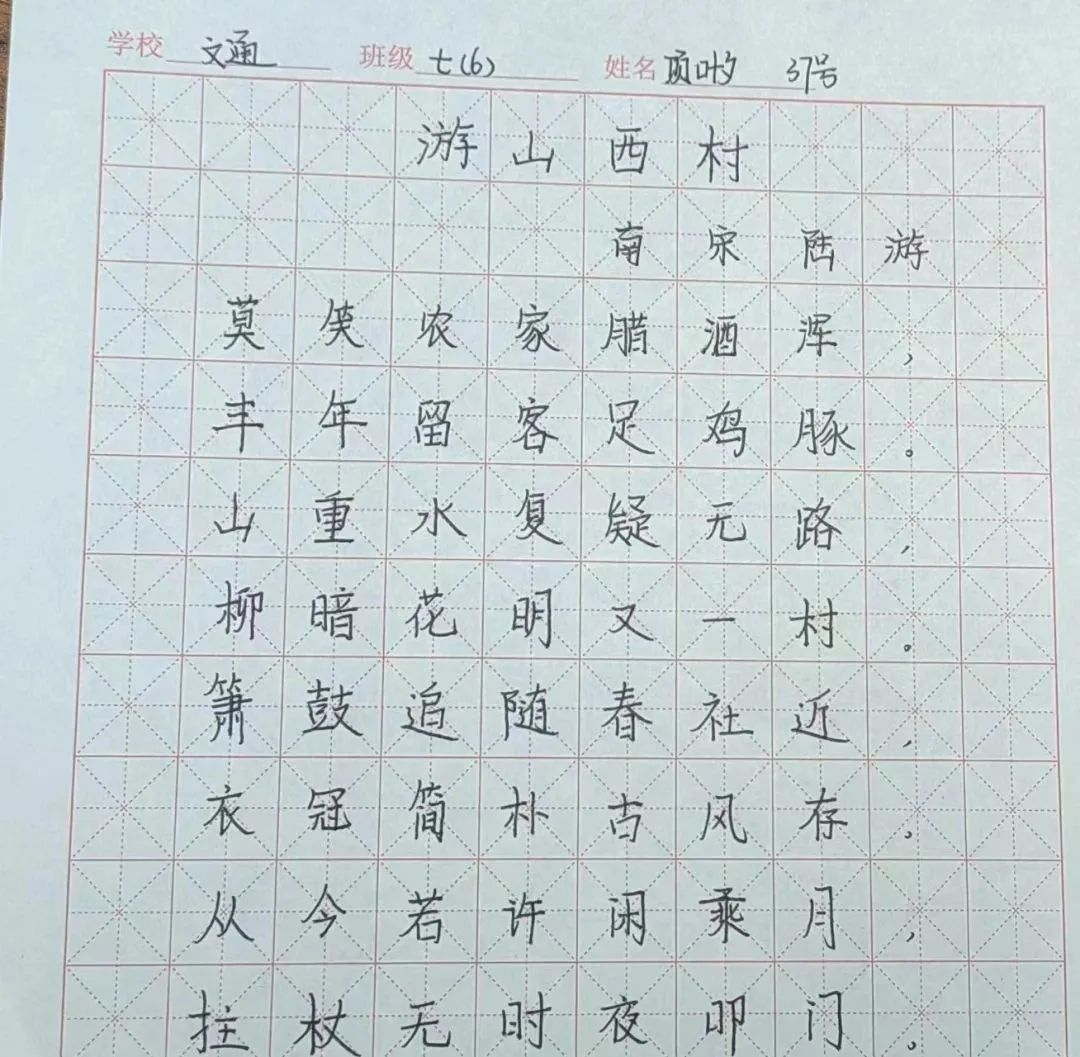 学校 文通 班级 七(6) 姓名 37号
游山西村
南宋 陆游
莫笑农家腊酒浑，
丰年留客足鸡豚。
山重水复疑无路，
柳暗花明又一村。
箫鼓追随春社近，
衣冠简朴古风存。
从今若许闲乘月，
拄杖无时夜叩门。